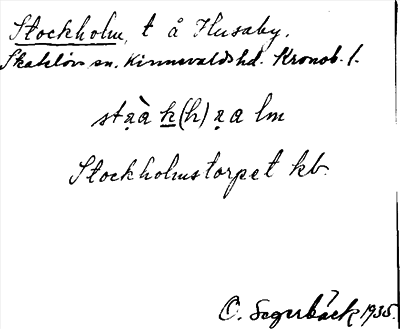 Stockholm, t å Husaby.
Skatelöv sn. Kinnevalds hd. Kronob. l.
stạ̀à k(h)ạa lm
Stockholmstorpet kb.
O. Segerbäck 1935.